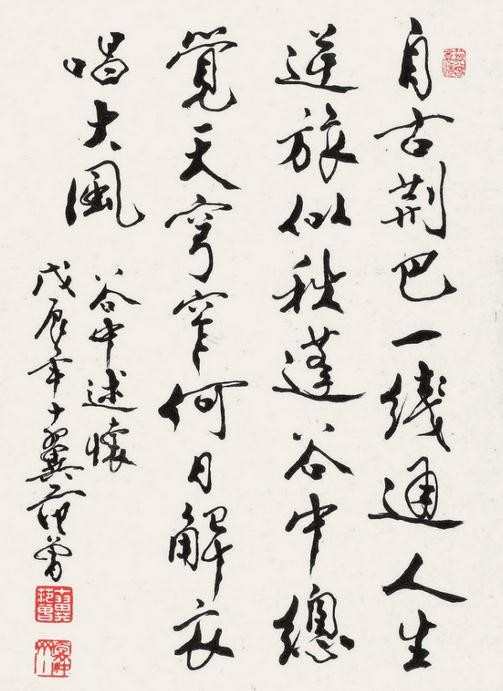 自古荆巴一线通人生
逆旅似秋蓬谷中總
覺天穹窄何日解衣
唱大風
谷中述懷
戊辰年十翼范曾